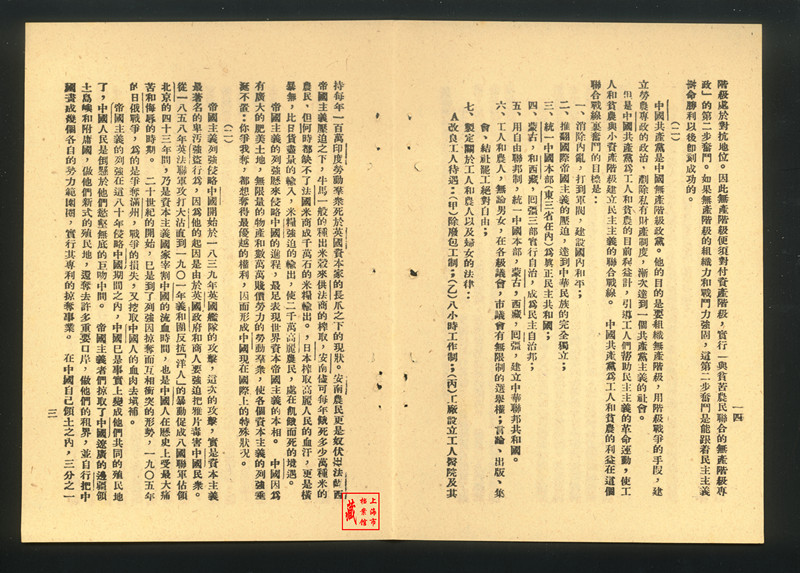 階級處於對抗地位。因此無產階級便須對付資產階級，實行「與貧苦農民聯合的無產階級專
政」的第二步奮鬥。如果無產階級的組織力和戰鬥力強固，這第二步奮鬥是能跟着民主主義
革命勝利以後即刻成功的。
（二）
中國共產黨是中國無產階級政黨。他的目的是要組織無產階級，用階級戰爭的手段，建
立勞農專政的政治，剷除私有財產制度，漸次達到一個共產黨主義的社會。
但是中國共產黨爲工人和貧農的目前利益計，引導工人們幫助民主主義的革命運動，使工
人和貧農與小資產階級建立民主主義的聯合戰線。 中國共產黨爲工人和貧農的利益在這個
聯合戰線裏奮鬥的目標是：
一、消除內亂，打到軍閥，建設國內和平；
二、推翻國際帝國主義的壓迫，達到中華民族的完全獨立；
三、統一中國本部（東三省在內）爲眞正民主共和國；
四、蒙古，和西藏，囘疆三部實行自治，成爲民主自治邦；
五、用自由聯邦制，統一中國本部，蒙古，西藏，囘疆，建立中華聯邦共和國。
六、工人和農人，無論男女，在各級議會，市議會有無限制的選舉權；言論、出版、集
會、結社罷工絕對自由；
七、製定關於工人和農人以及婦女的法律：
A改良工人待遇：（甲）除廢包工制；（乙）八小時工作制；（丙）工廠設立工人醫院及其
一四
持每年一百萬印度勞動羣衆死於英國資本家的長爪之下的現狀。安南農民更是奴伏
帝國主義壓迫之下，牛馬一般的種出米穀來供法商的榨取，安南儘可每年餓死多少萬種米的
農民，但何時都缺不了法國米商成千萬石的米糧輸出。，日本榨取高麗人民的血汗，更是橫
暴無，比日貨盡量的輸入，米糧強迫的輸出，使二千萬高麗農民，處在飢餓而死的境遇。
帝國主義的列強歷來侵略中國的進程，最足表現世界資本帝國主義的本相。 中國因爲
有廣大的肥美土地，無限量的物產和數萬萬賤價勞力的勞動羣衆，使各個資本主義的列強垂
涎不置：你爭我奪，都想奪得最優越的權利，因而形成中國現在國際上的特殊狀況。
（二）
帝國主義列強侵略中國開始於一八三九年英國艦隊的攻擊，這次的攻擊，實是資本主義
最著名的卑汚强盜行爲，因爲他的起因是由於英國政府和商人要強迫把雅片毒害中國民衆。
從一八五八年英法聯軍攻打大沽直到一九〇一年義和團反抗「洋人」的暴動促成八國聯軍佔領
北京的四十三年間，乃是資本主義國家宰割中國的流血時間，也是中國人在歷史上受最大痛
苦和侮辱的時期。 二十世紀的開始，已是到了列強因掠奪而互相衝突的形勢，一九〇五年
的日俄戰爭，爲的是爭奪滿州，戰爭的損失，又挖取中國人的血肉去填補。
帝國主義的列強在這八十年侵略中國期間之內，中國已是事實上變成他們共同的殖民地
了，中國人民是倒懸於他們慾壑無底的巨吻中間。 帝國主義者們掠取了中國遼廣的邊疆領
土島嶼和附庸國，做他們新式的殖民地，還奪去許多重要口岸，做他們的租界，並自行把中
國畫成幾個各自的勢力範圍圈，實行其專利的掠奪事業。 在中國自己領土之內，三分之一
三
上海市檔案館藏